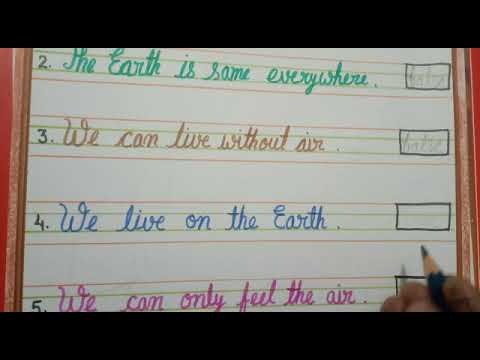 2. The Earth is same everywhere. false
3. We can live without air. false
4. We live on the Earth.
5. We can only feel the air.